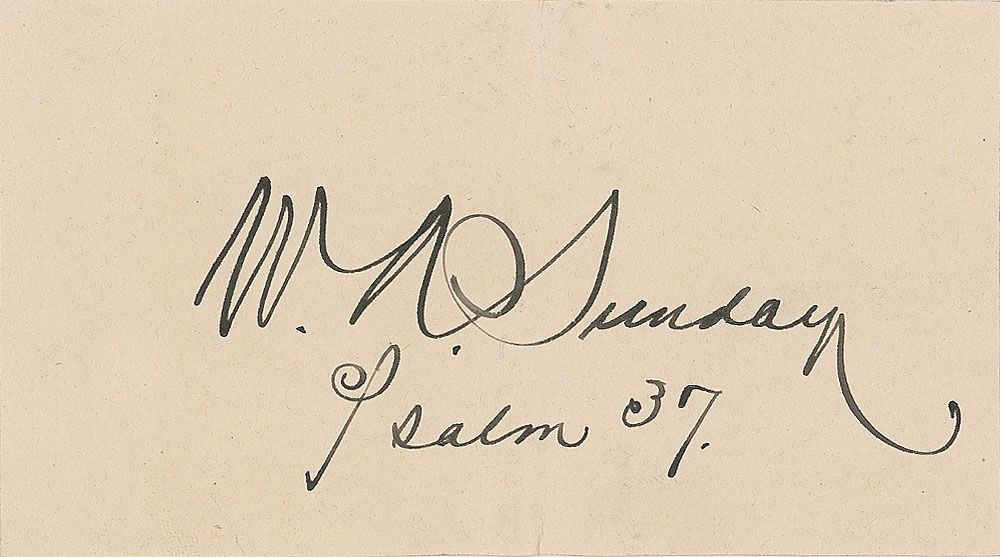 W. A. Sunday
Psalm 37.